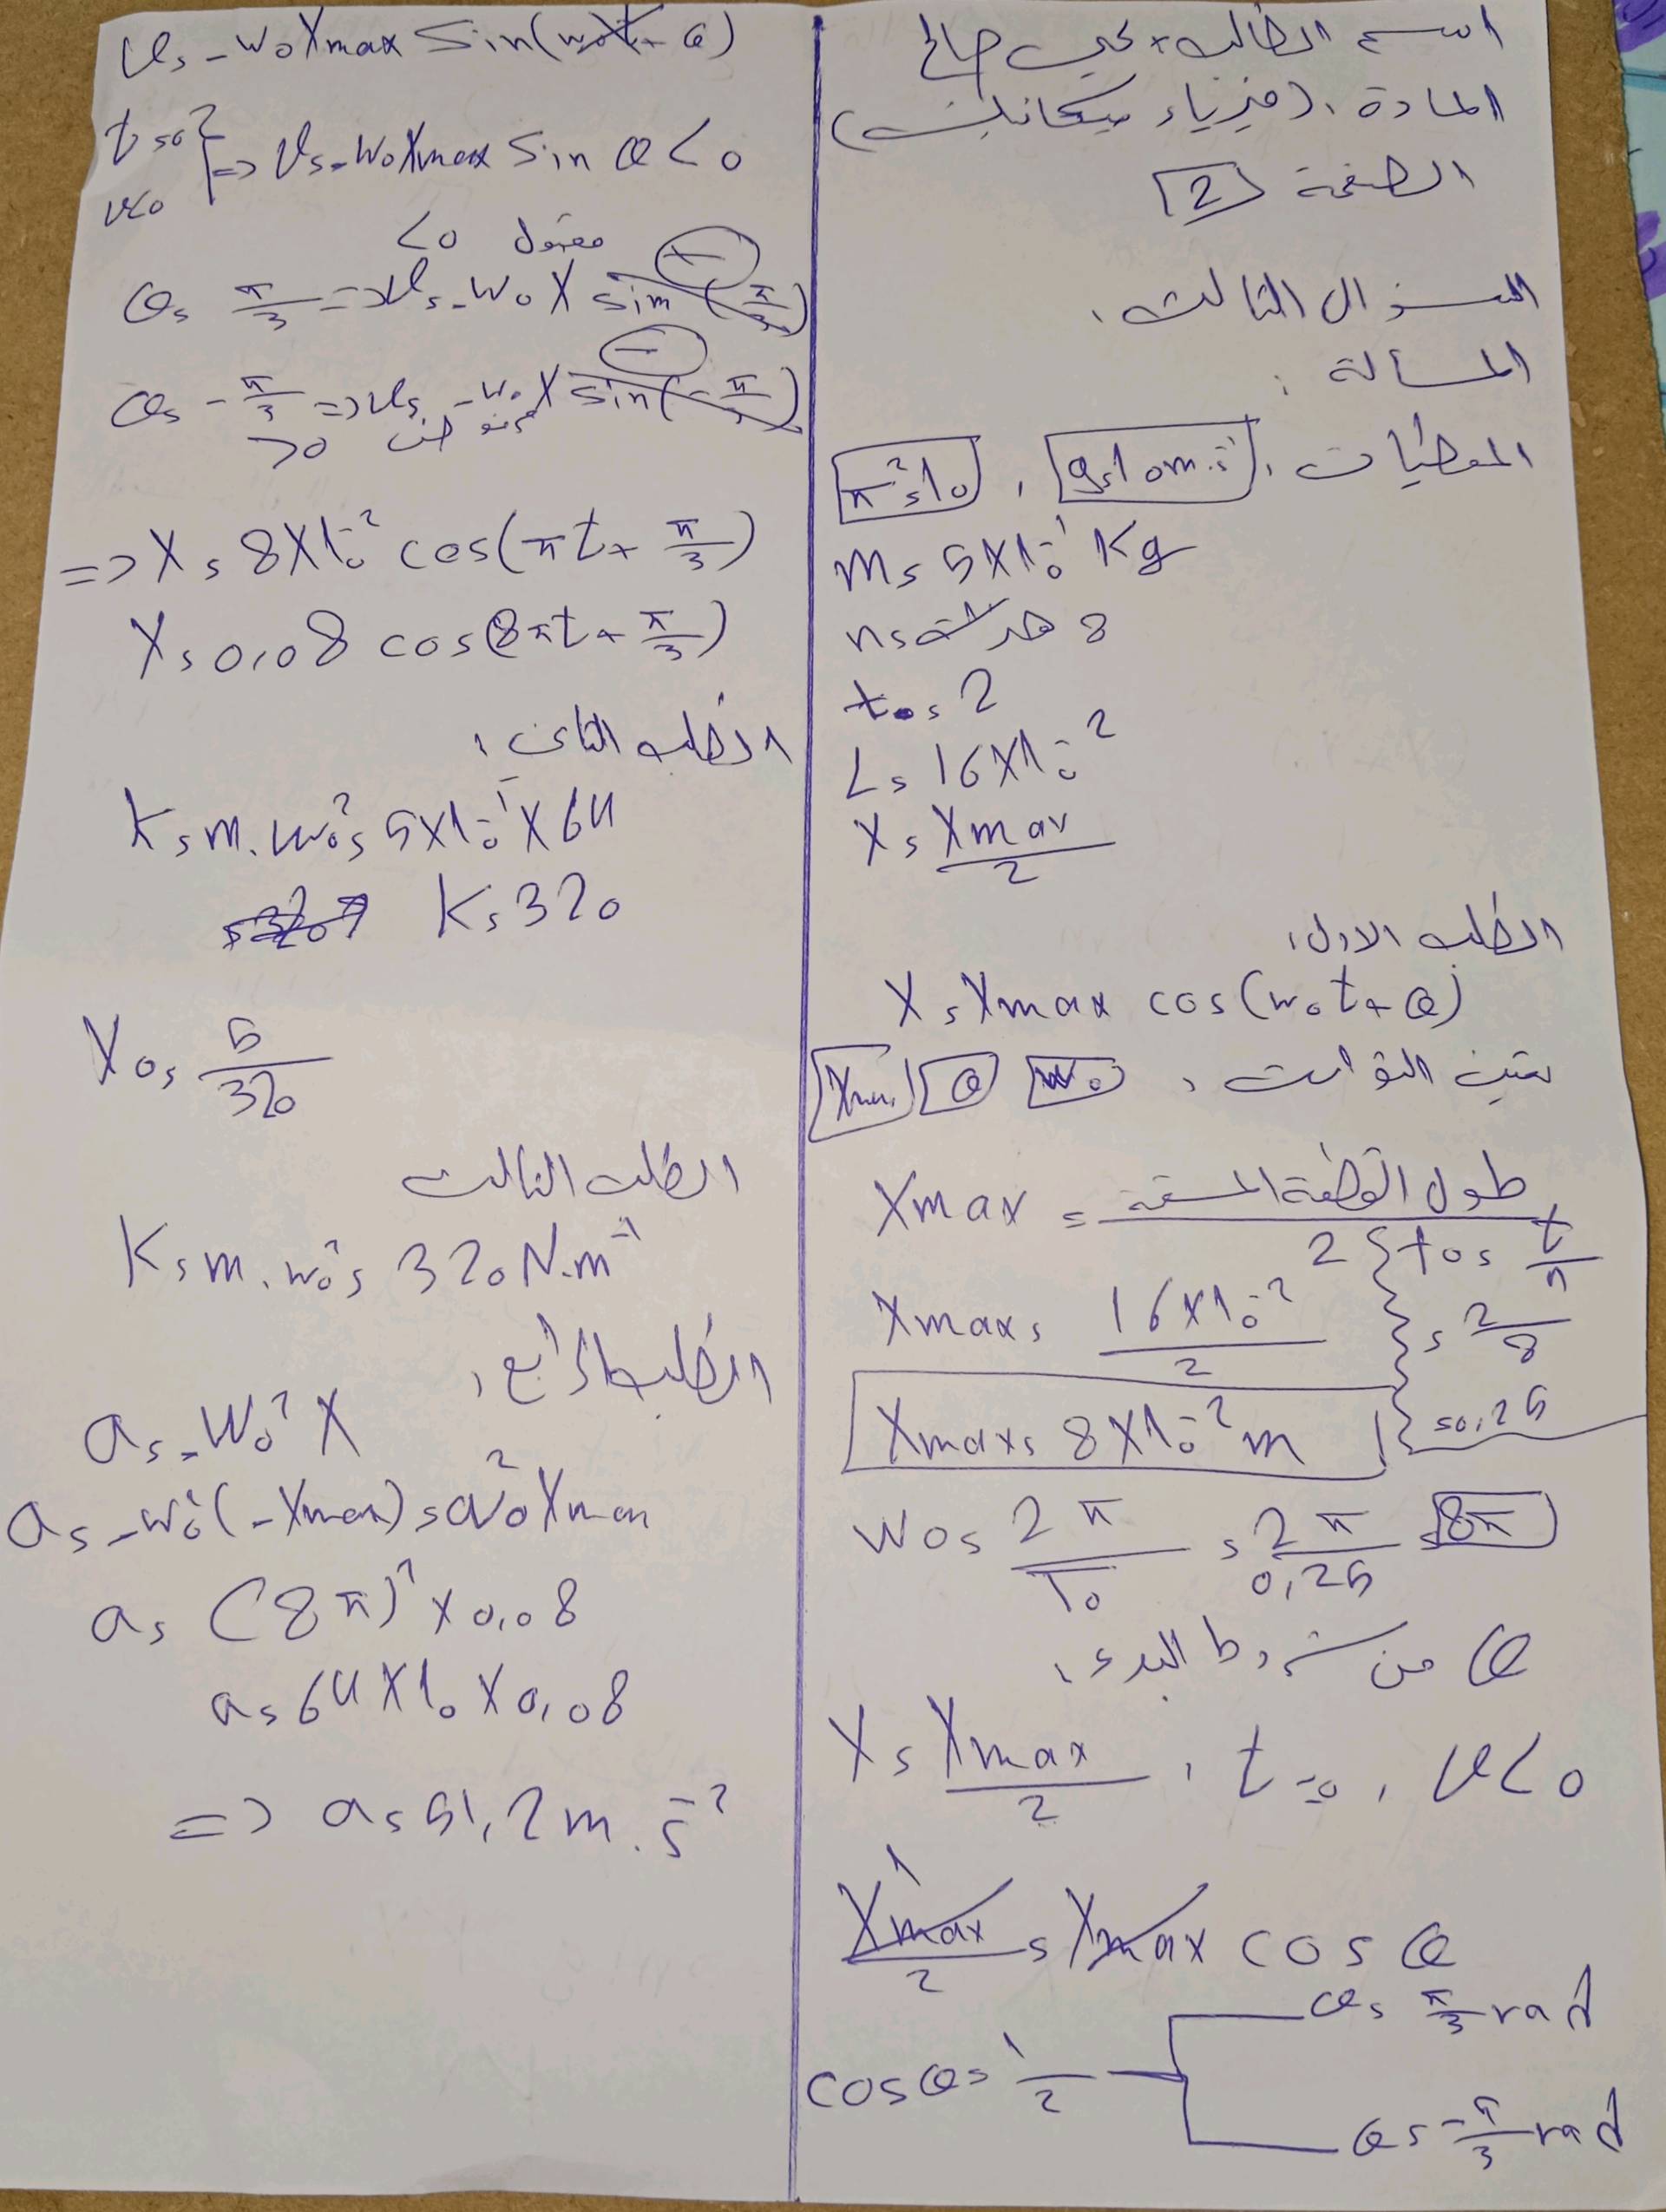 اسم الطالب: يحيى صالح
المادة: (فيزياء ميكانيك)
الصفحة [2]
السؤال الثالث:
المسألة:
المعطيات: g = 10 m.s⁻² , π² = 10
m = 5×10⁻¹ Kg
n = هزات 8
t₀ = 2
L = 16×10⁻²
X = Xmax/2
الطلب الاول:
X = Xmax cos(w₀t + φ)
تعيين الثوابت: w₀ φ Xmax
Xmax = طول القطعة المستقيمة / 2
Xmax = 16×10⁻² / 2
Xmax = 8×10⁻² m
T₀ = t/n
= 2/8
= 0,25
w₀ = 2π/T₀ = 2π/0,25 = 8π
φ من شروط البدء:
X = Xmax/2 , t=0 , v<0
Xmax/2 = Xmax cos φ
cos φ = 1/2
φ = π/3 rad
φ = -π/3 rad
v = -w₀Xmax sin(w₀t + φ)
t=0
v<0 } => v = -w₀Xmax sin φ < 0
<0 مقبول
φ = π/3 => v = -w₀X sin(π/3)
φ = -π/3 => v = -w₀X sin(-π/3)
>0 مرفوض
=> X = 8×10⁻² cos(πt + π/3)
X = 0,08 cos(8πt + π/3)
الطلب الثاني:
K = m.w₀² = 5×10⁻¹ × 64
K = 320
X₀ = 5/320
الطلب الثالث
K = m.w₀² = 320 N.m⁻¹
الطلب الرابع:
a = -w₀² X
a = -w₀²(-Xmax) = w₀² Xmax
a = (8π)² × 0,08
a = 64 × 10 × 0,08
=> a = 51,2 m.s⁻²